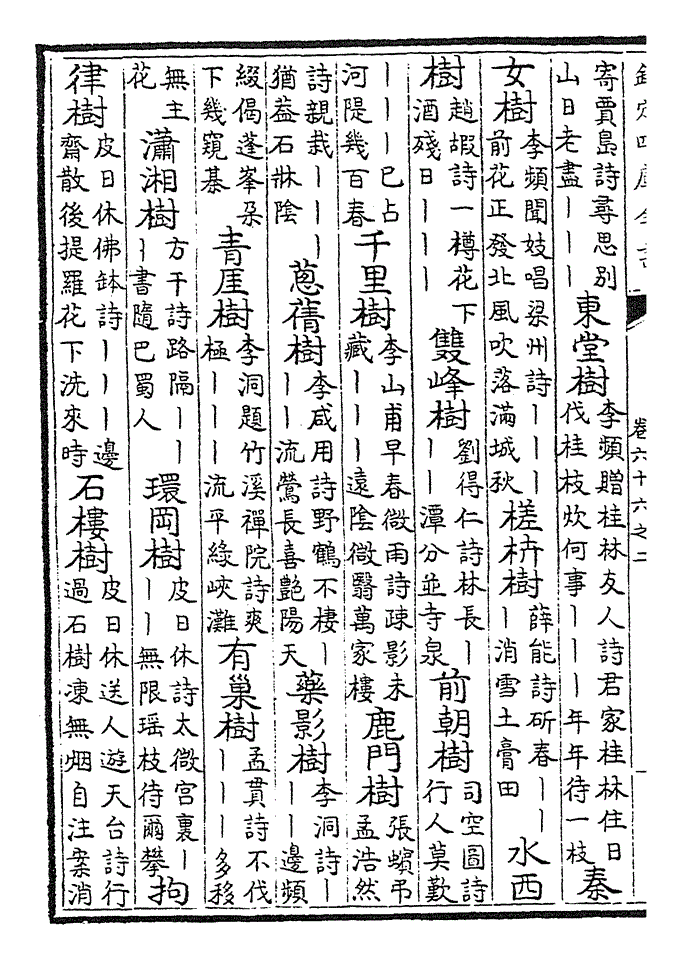 欽定四庫全書
卷六十六之二
寄賈島詩尋思别山日老盡丨丨丨東堂樹李頻贈桂林友人詩君家桂林住日伐桂枝炊何事丨丨丨年年待一枝秦
女樹李頻聞妓唱梁州詩丨丨丨前花正發北風吹落滿城秋槎枿樹薛能詩斫春丨丨丨消雪土膏田水西
樹趙嘏詩一樽花下酒殘日丨丨丨雙峰樹劉得仁詩林長丨丨丨潭分並寺泉前朝樹司空圖詩行人莫歎
丨丨丨已占河隄幾百春千里樹李山甫早春微雨詩疎影未藏丨丨丨遠陰微翳萬家樓鹿門樹張蠙弔孟浩然
詩親栽丨丨丨猶葢石牀陰蔥蒨樹李咸用詩野鶴不棲丨丨丨流鶯長喜艷陽天藥影樹李洞詩丨丨丨邊頻
綴偈蓬峯朵下幾窺棊青厓樹李洞題竹溪禪院詩爽極丨丨丨流平綠峽灘有巢樹孟貫詩不伐丨丨丨多移
無主花瀟湘樹方干詩路隔丨丨丨書隨巴蜀人環岡樹皮日休詩太微宮裏丨丨丨無限瑶枝待爾攀拘
律樹皮日休佛鉢詩丨丨丨邊齋散後提羅花下洗來時石樓樹皮日休送人遊天台詩行過石樹凍無烟自注案消